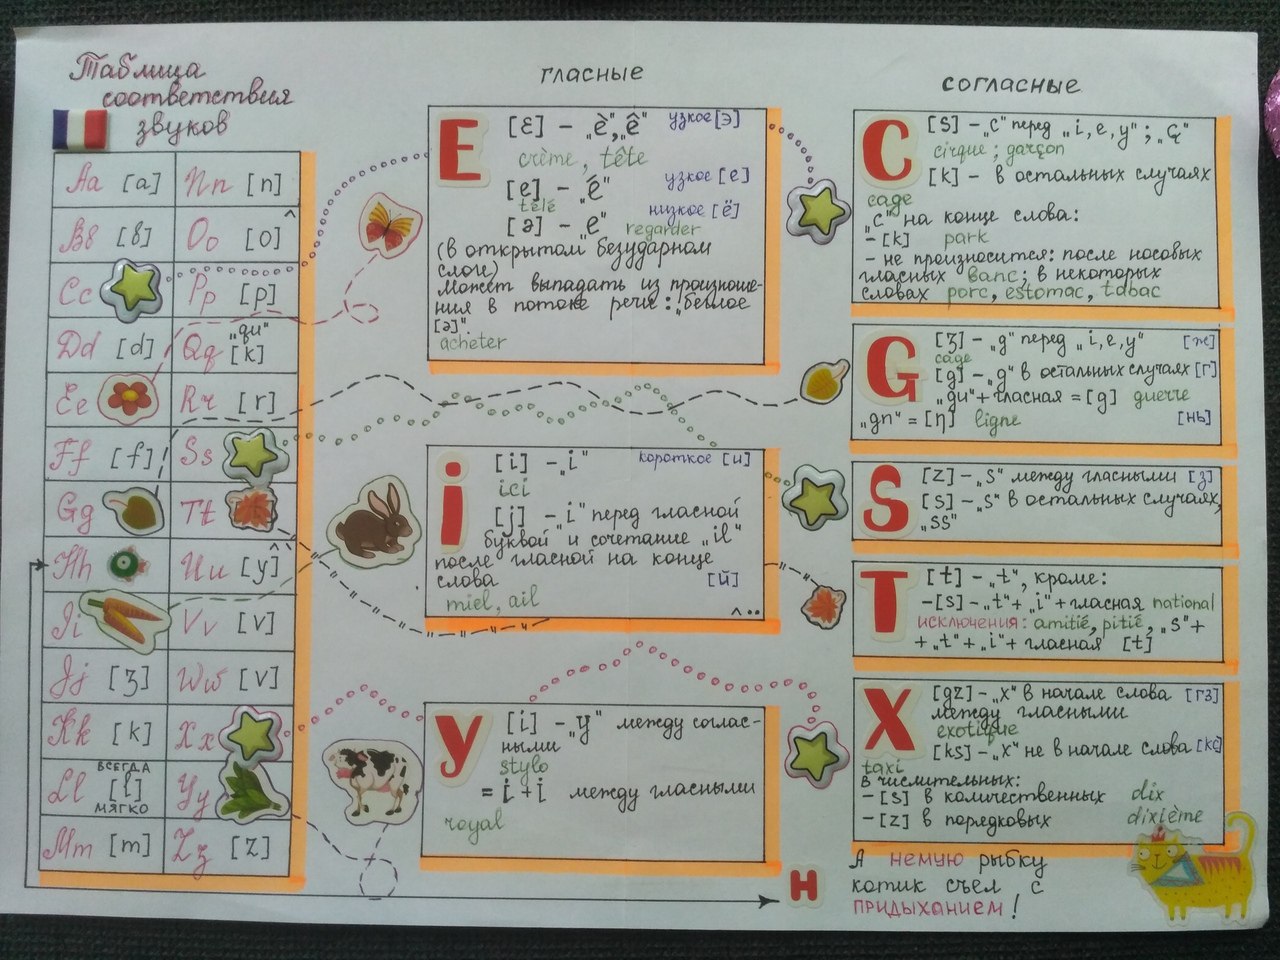 Таблица
соответствия
звуков
Aa [a] Nn [n]
Bb [b] Oo [o] ^
Cc Pp [p]
Dd [d] Qq „qu" [k]
Ee Rr [r]
Ff [f] Ss
Gg Tt [t]
Hh Uu [y] ^
Ii Vv [v]
Jj [ʒ] Ww [v]
Kk [k] Xx
Ll всегда [l] мягко Yy
Mm [m] Zz [z]
гласные
E [ɛ] – „è", „ê" узкое [э]
crème, tête
[e] – „é" узкое [е]
télé
[ə] – „e" низкое [ё]
regarder
(в открытом безударном
слоге)
Может выпадать из произноше-
ния в потоке речи: „беглое
[ə]".
acheter
i [i] – „i" короткое [и]
ici
[j] – „i" перед гласной
буквой и сочетание „il"
после гласной на конце
слова [й]
miel, ail
^ ••
y [i] – „y" между соглас-
ными
stylo
= i + i между гласными
royal
согласные
C [s] – „c" перед „i, e, y"; „ç"
cirque; garçon
[k] – в остальных случаях
cage
„c" на конце слова:
– [k] park
– не произносится: после носовых
гласных banc; в некоторых
словах porc, estomac, tabac
G [ʒ] – „g" перед „i, e, y" [ж]
cage
[g] – „g" в остальных случаях [г]
„gu" + гласная = [g] guerre
„gn" = [η] ligne [нь]
S [z] – „s" между гласными [з]
[s] – „s" в остальных случаях,
„ss"
T [t] – „t", кроме:
– [s] – „t" + „i" + гласная national
исключения: amitié, pitié, „s" +
+ „t" + „i" + гласная [t]
X [gz] – „x" в начале слова [гз]
между гласными
exotique
[ks] – „x" не в начале слова [кс]
taxi
в числительных:
– [s] в количественных dix
– [z] в порядковых dixième
н А немую рыбку
котик съел с
придыханием!